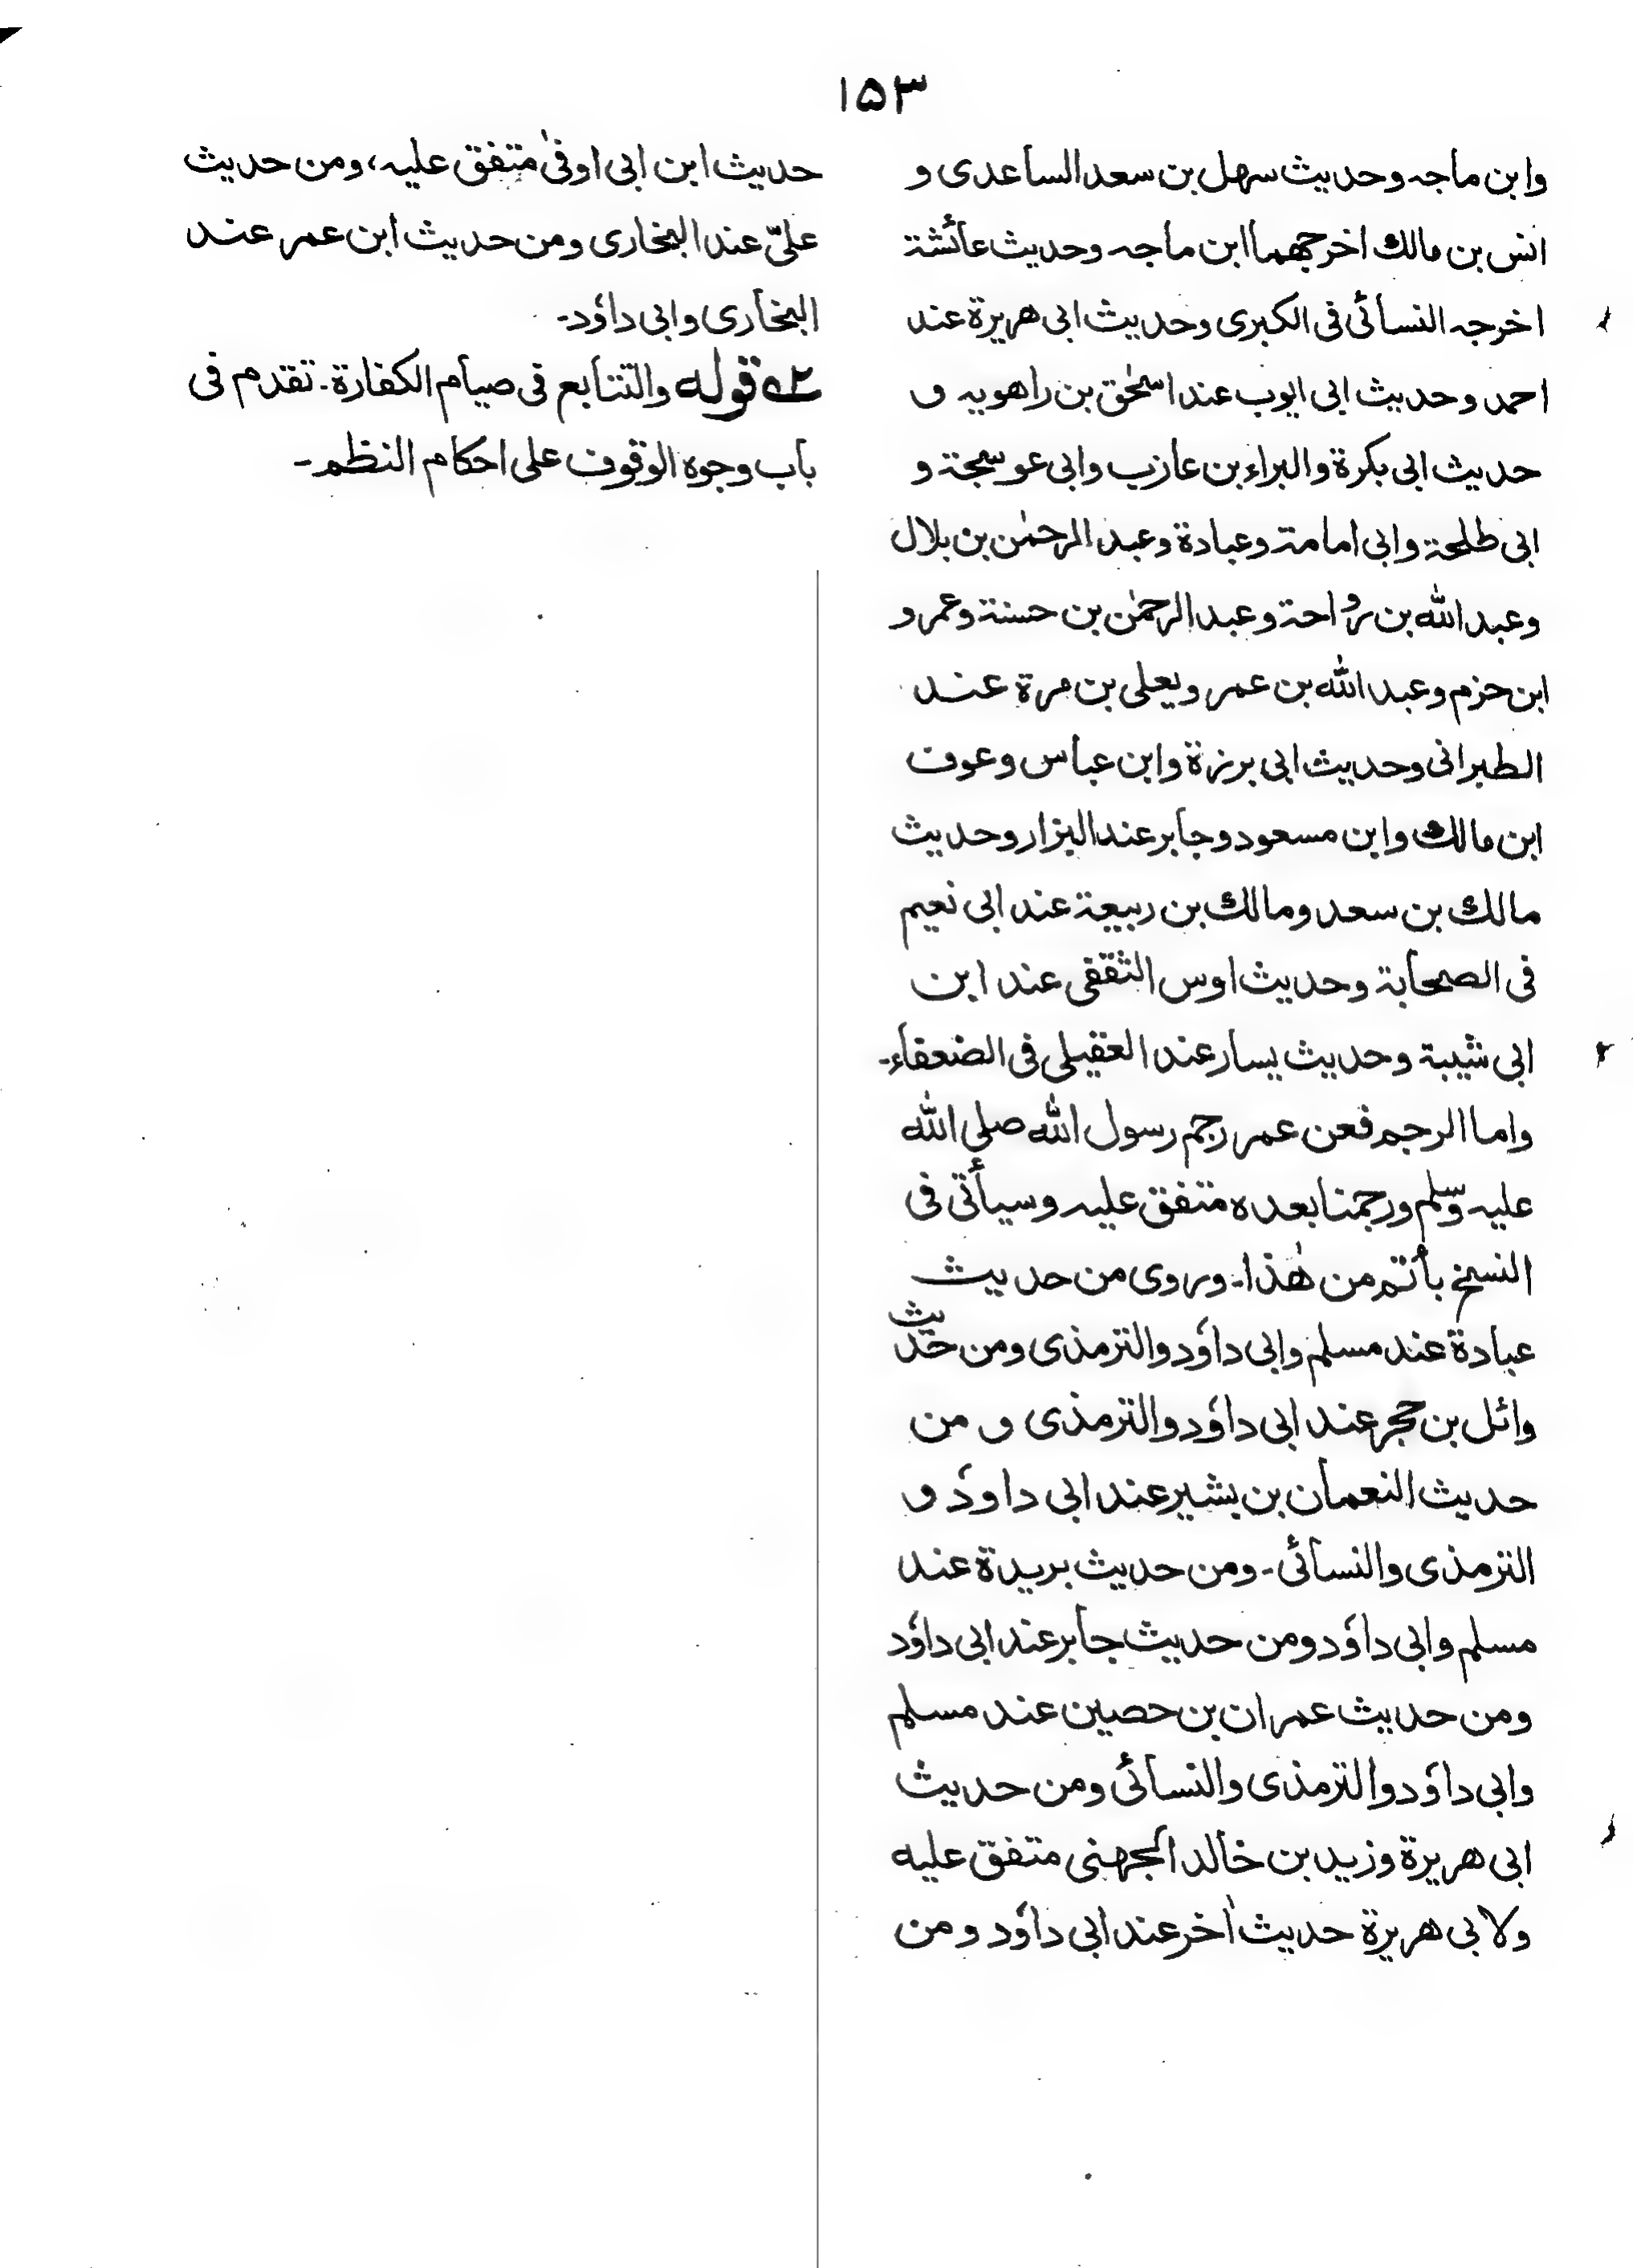 ۱۵۳
وابن ماجہ وحدیث سھل بن سعد الساعدی و
انس بن مالك اخرجھما ابن ماجہ وحدیث عائشۃ
اخرجہ النسائی فی الکبری وحدیث ابی ھریرۃ عند
احمد وحدیث ابی ایوب عند اسحٰق بن راھویہ و
حدیث ابی بکرۃ والبراء بن عازب وابی عوسجۃ و
ابی طلحۃ وابی امامۃ وعبادۃ وعبد الرحمٰن بن بلال
وعبد اللّٰہ بن رواحۃ وعبد الرحمٰن بن حسنۃ وعمرو
ابن حزم وعبد اللّٰہ بن عمر ویعلی بن مرۃ عند
الطبرانی وحدیث ابی برزۃ وابن عباس وعوف
ابن مالك وابن مسعود وجابر عند البزار وحدیث
مالك بن سعد ومالك بن ربیعۃ عند ابی نعیم
فی الصحابۃ وحدیث اوس الثقفی عند ابن
ابی شیبۃ وحدیث یسار عند العقیلی فی الضعفاء۔
واما الرجم فعن عمر رجم رسول اللّٰہ صلی اللّٰہ
علیہ وسلم ورجمنا بعدہ متفق علیہ وسیأتی فی
النسخ بأتم من ھٰذا۔ وروی من حدیث
عبادۃ عند مسلم وابی داؤد والترمذی ومن حدیث
وائل بن حجر عند ابی داؤد والترمذی و من
حدیث النعمان بن بشیر عند ابی داؤد و
الترمذی والنسائی۔ ومن حدیث بریدۃ عند
مسلم وابی داؤد ومن حدیث جابر عند ابی داؤد
ومن حدیث عمران بن حصین عند مسلم
وابی داؤد والترمذی والنسائی ومن حدیث
ابی ھریرۃ وزید بن خالد الجھنی متفق علیہ
ولابی ھریرۃ حدیث اٰخر عند ابی داؤد ومن
حدیث ابن ابی اوفیٰ متفق علیہ، ومن حدیث
علیّ عند البخاری ومن حدیث ابن عمر عند
البخاری وابی داؤد۔
۲؎ قولہ والتتابع فی صیام الکفارۃ۔ تقدم فی
باب وجوہ الوقوف علی احکام النظم۔